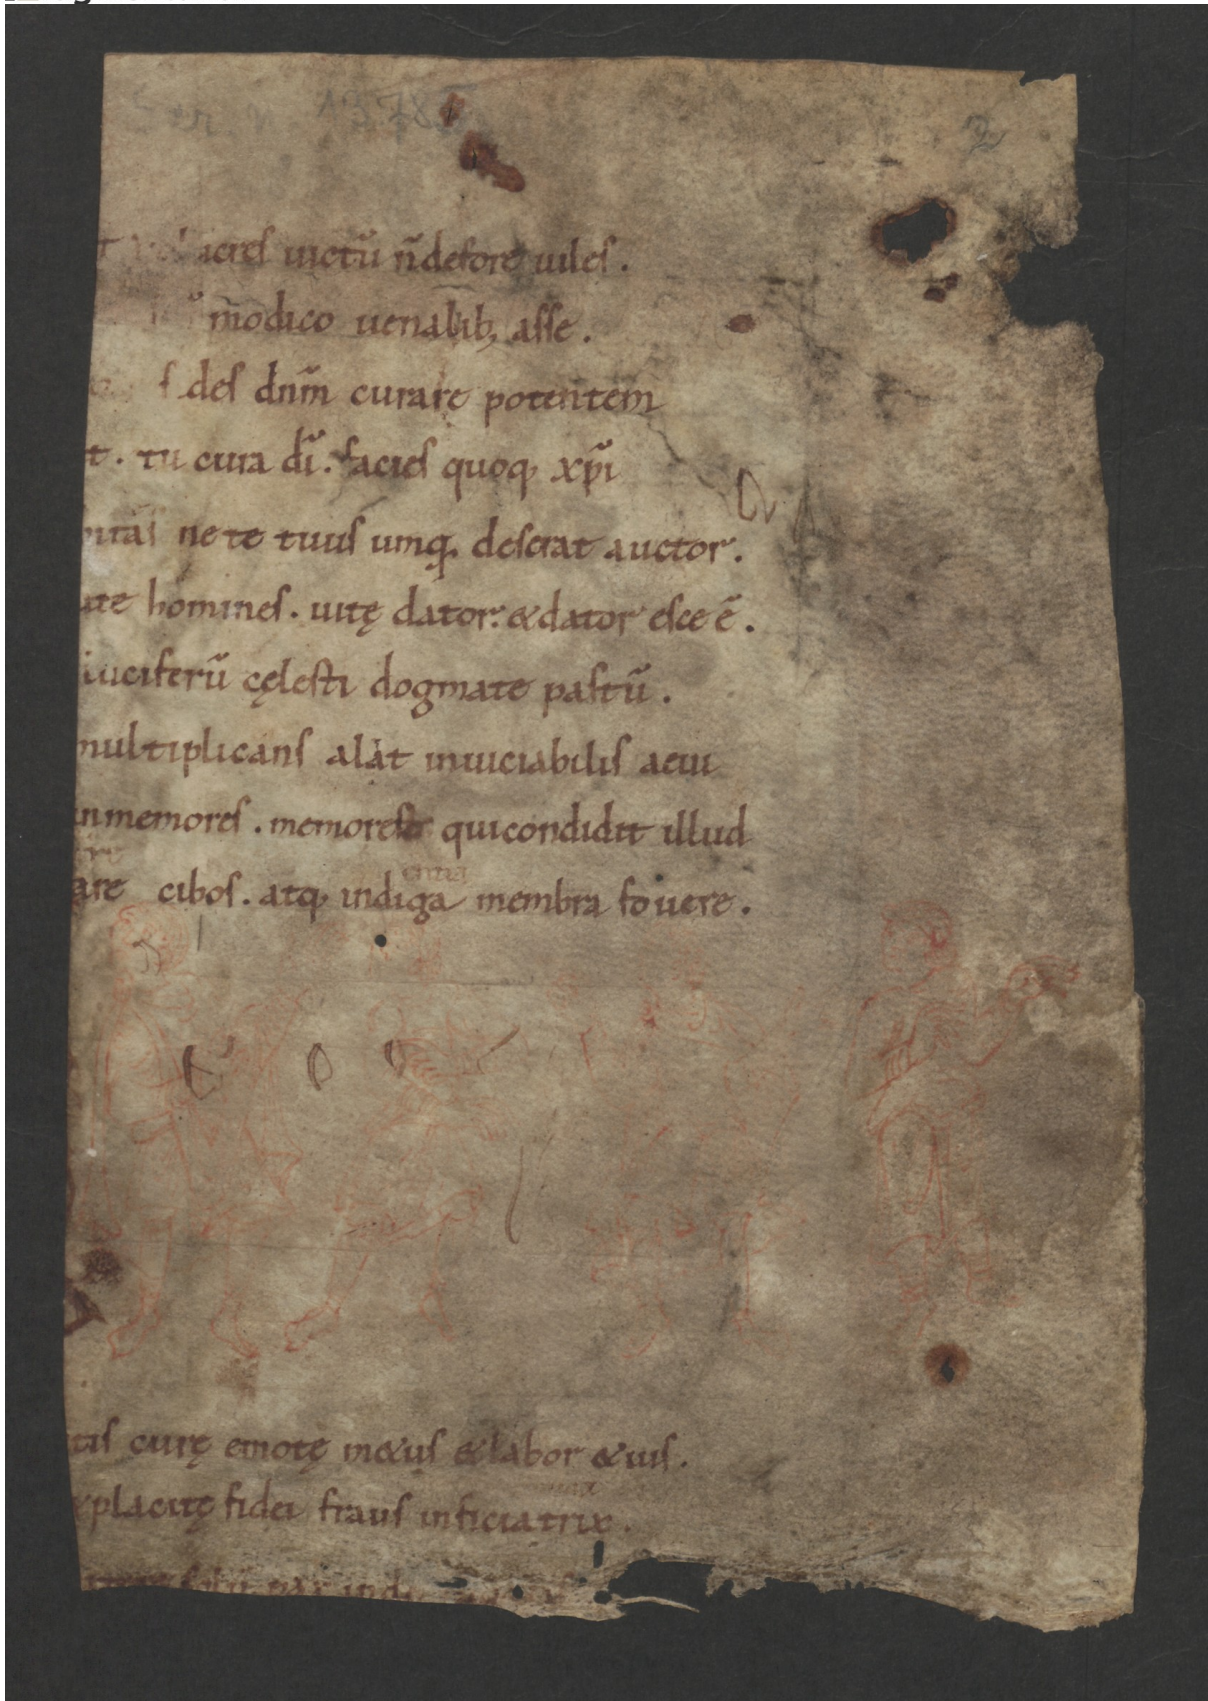 acres uictū n̄ defore uiles.
m̄odico uenalib; asse.
des dn̄m curare potentem
t. tu cura dī. facies quoq; xp̄i
ne te tuus umq; deserat auctor.
homines. uitę dator. & dator esce ē.
luciferū cęlesti dogmate pastū.
multiplicans alat inuiciabilis aeui
inmemores. memor est qui condidit illud
are cibos. atq; indiga membra fouere.
tis curę emotę m&us & labor & uis.
placitę fidei fraus inficiatrix.